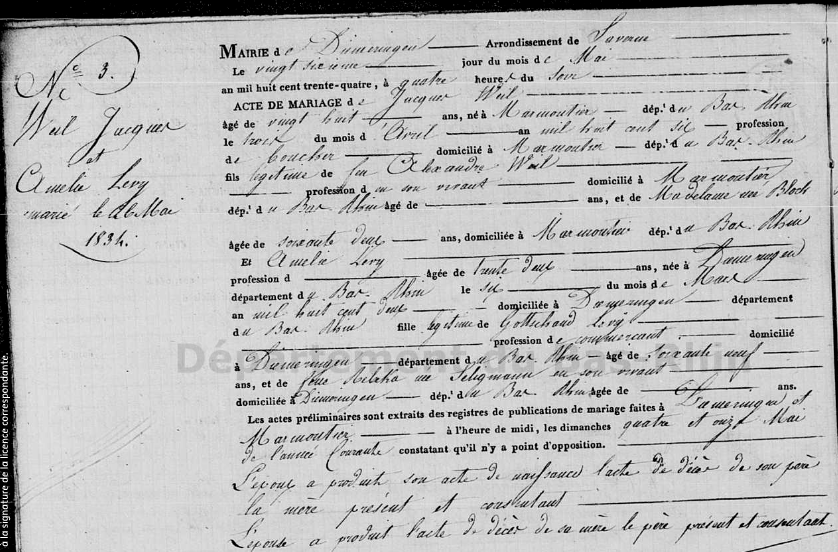 N° 3.
Weil Jacques
et
Amelie Levy
marié le 26 Mai
1834.
MAIRIE de Dümeringen Arrondissement de Saverne
Le vingt sixième jour du mois de Mai
an mil huit cent trente-quatre, à quatre heures du soir
ACTE DE MARIAGE de Jacques Weil
âgé de vingt huit ans, né à Marmoutier dép.t du Bas Rhin
le trois du mois d'Avril an mil huit cent six profession
de boucher domicilié à Marmoutier dép.t du Bas-Rhin
fils légitime de feu Alexandre Weil
profession d en son vivant domicilié à Marmoutier
dép.t du Bas Rhin âgé de ans, et de Madelaine née Bloch
âgée de soixante deux ans, domiciliée à Marmoutier dép.t du Bas-Rhin
Et Amelie Levy âgée de trente deux ans, née à Dümeringen
profession d
département du Bas-Rhin le six du mois de Mars
an mil huit cent deux domiciliée à Dümeringen département
du Bas Rhin fille légitime de Gottschaud Levy
profession de commerçant domicilié
à Dümeringen département du Bas Rhin âgé de soixante neuf
ans, et de feue née Seligmann en son vivant
domiciliée à Dümeringen dép.t du Bas Rhin âgée de ans.
Les actes préliminaires sont extraits des registres de publications de mariage faites à Dümeringen et
Marmoutier à l'heure de midi, les dimanches quatre et onze Mai
de l'année Courante constatant qu'il n'y a point d'opposition.
L'epoux a produit son acte de naissance l'acte de décès de son père
la mère présent et consentant
L'epouse a produit l'acte de décès de sa mère le père présent et consentant.
à la signature de la licence correspondante.
Département du Bas-Rhin